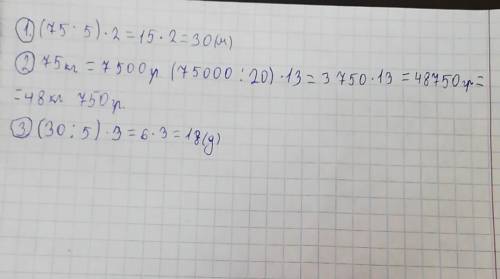 ① (75 : 5) · 2 = 15 · 2 = 30 (м)
② 75 кг = 7500 гр (75000 : 20) · 13 = 3 750 · 13 = 48750 гр =
= 48 кг 750 гр.
③ (30 : 5) · 3 = 6 · 3 = 18 (д)